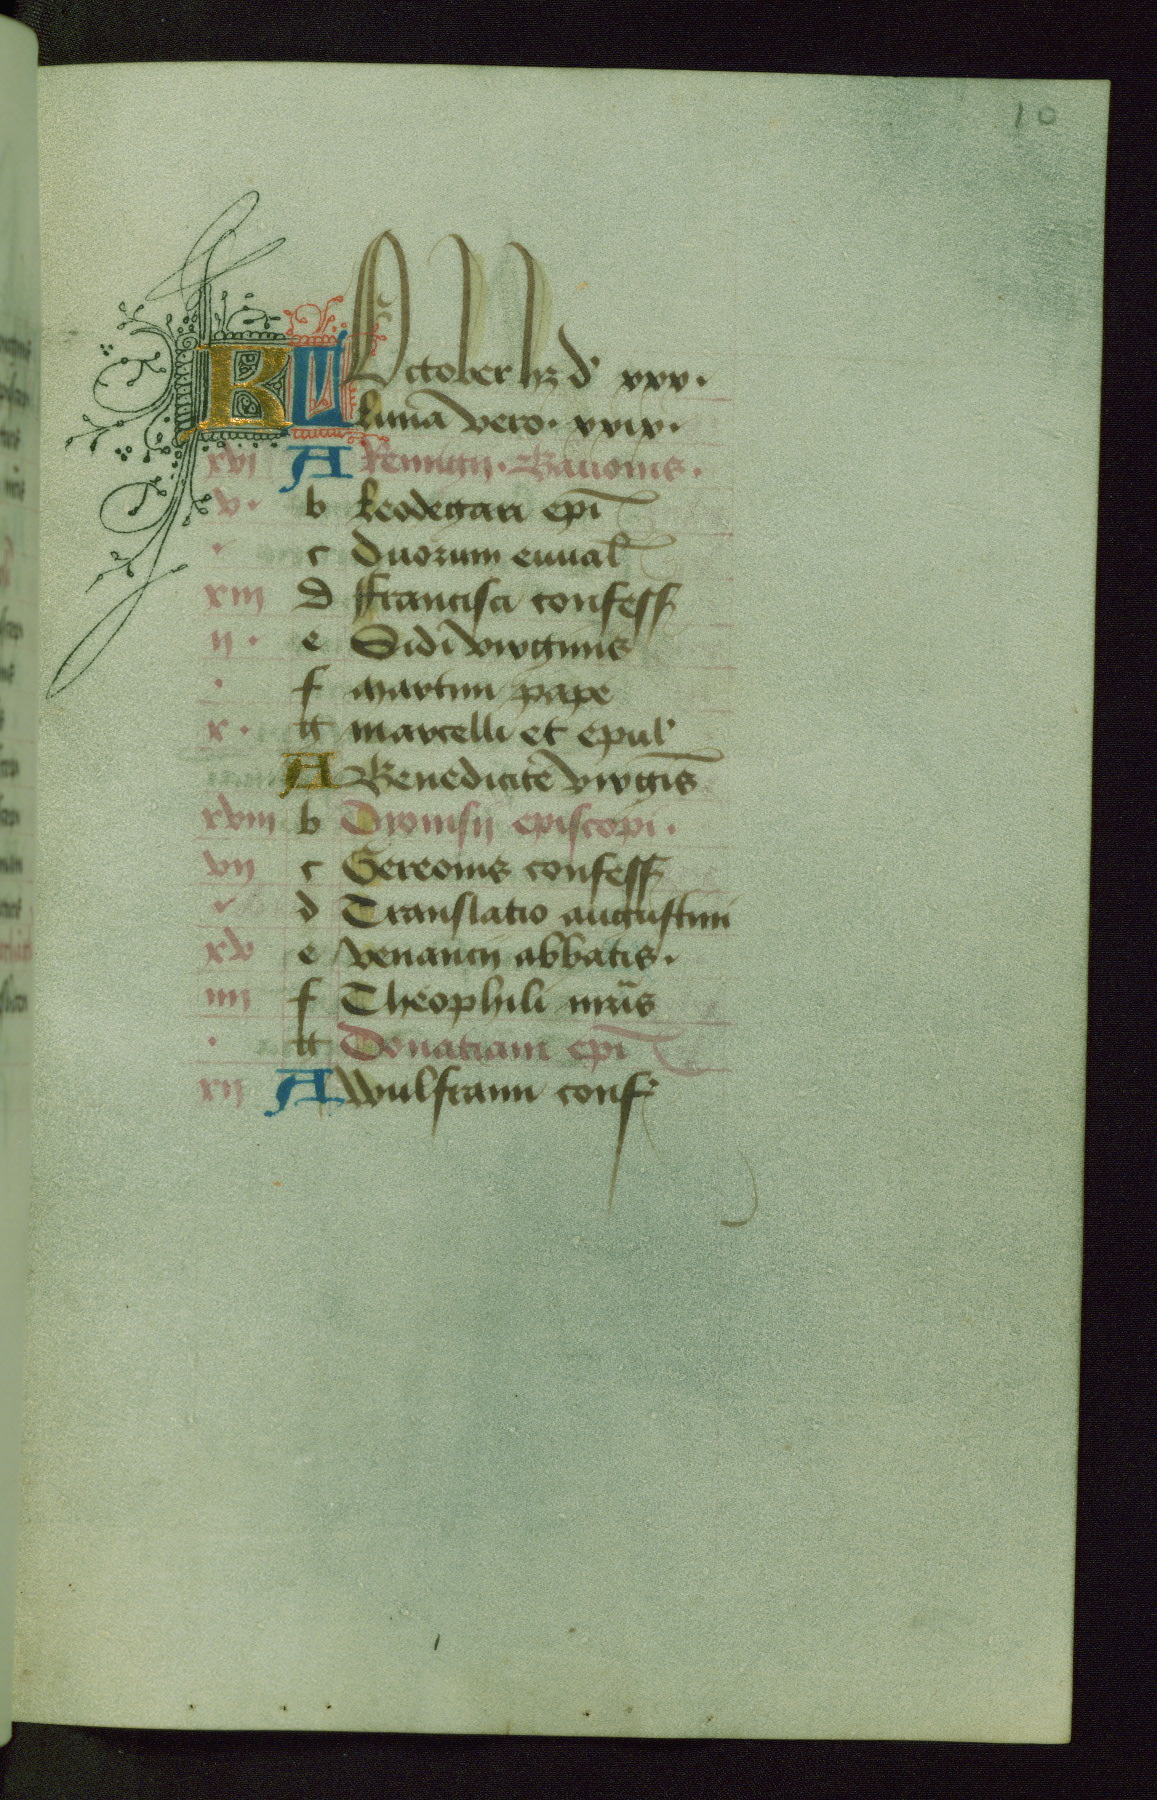 10
KL October hz d' xxx.
luna vero. xxix.
xvi A Remigii. Bavonis.
v. b Leodegari epi
c duorum euual'
xiii d Francisci confess
ii. e Fidi virginis
f marcii pape
x. g marcelli et epul'
A Benedicte virgis
xviii b Dyonisii episcopi.
vii c Gereonis confess
d Translatio augustini
xv e venancii abbatis.
iiii f Theophili mris
g Donatiani epi
xii A Wulfranni conf